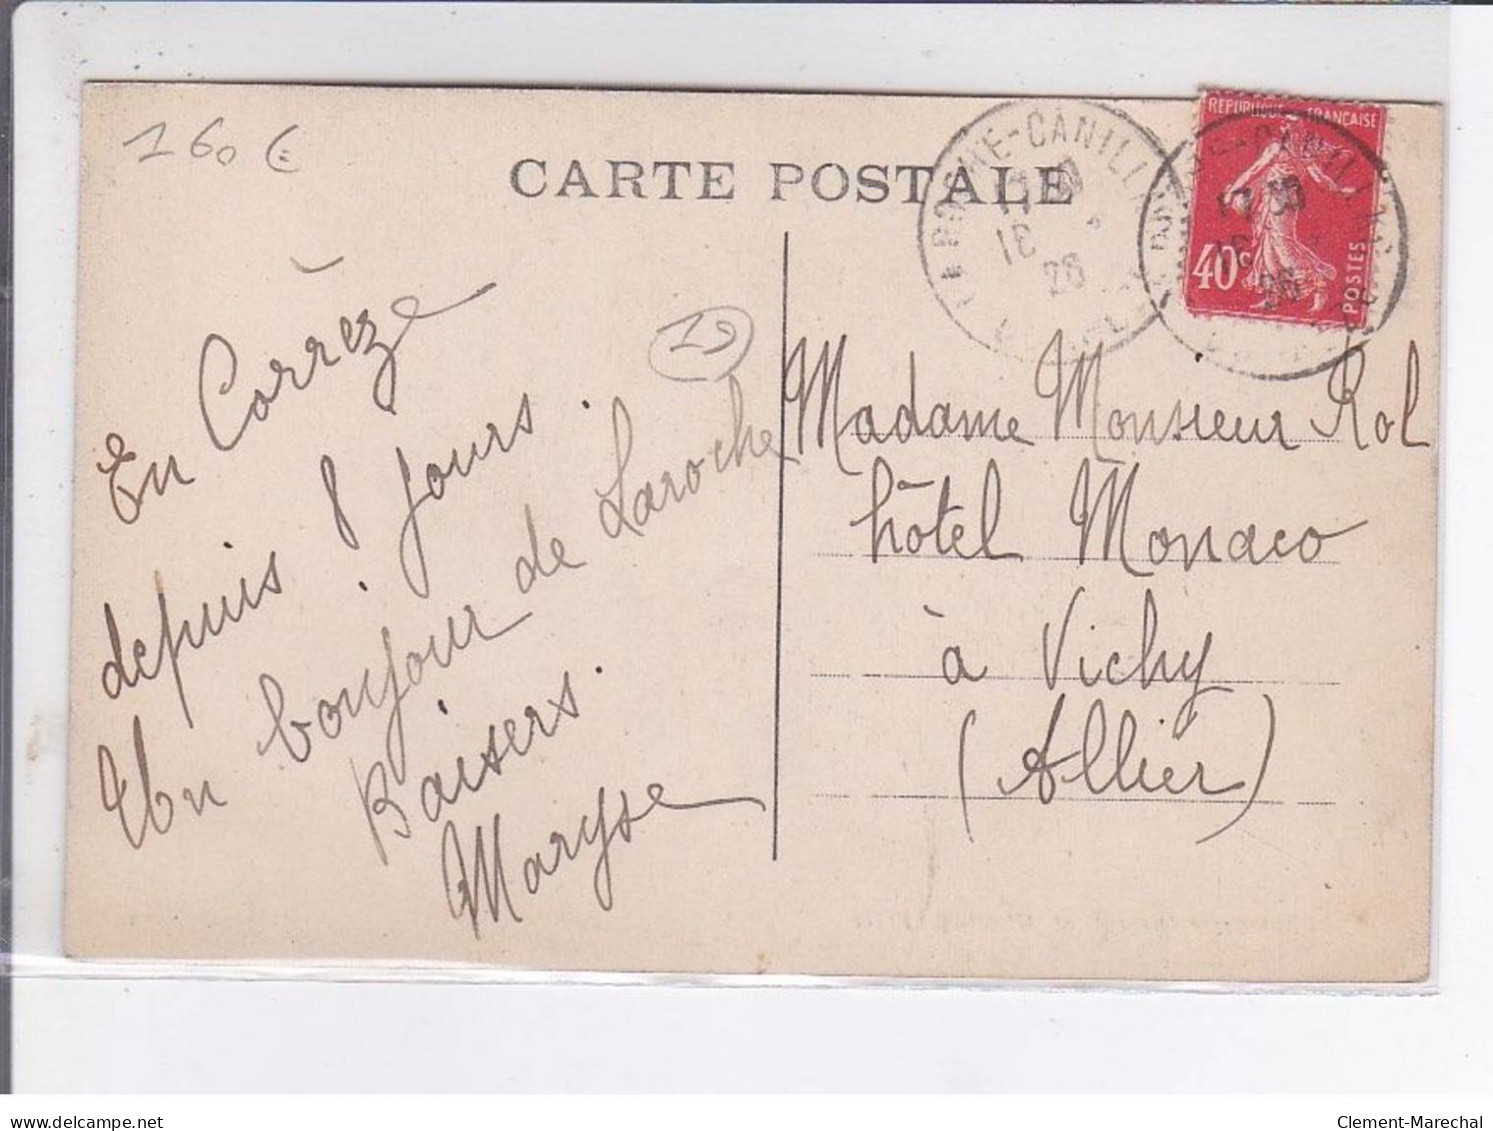 160 €
CARTE POSTALE
LAROCHE-CANILLAC
17 30
16
26
REPUBLIQUE FRANÇAISE
40c
POSTES
19
En Corrèze
depuis 8 jours.
Un bonjour de Laroche
Baisers.
Maryse
Madame Monsieur Rol
hôtel Monaco
à Vichy
(Allier)
www.delcampe.net
Clement-Marechal